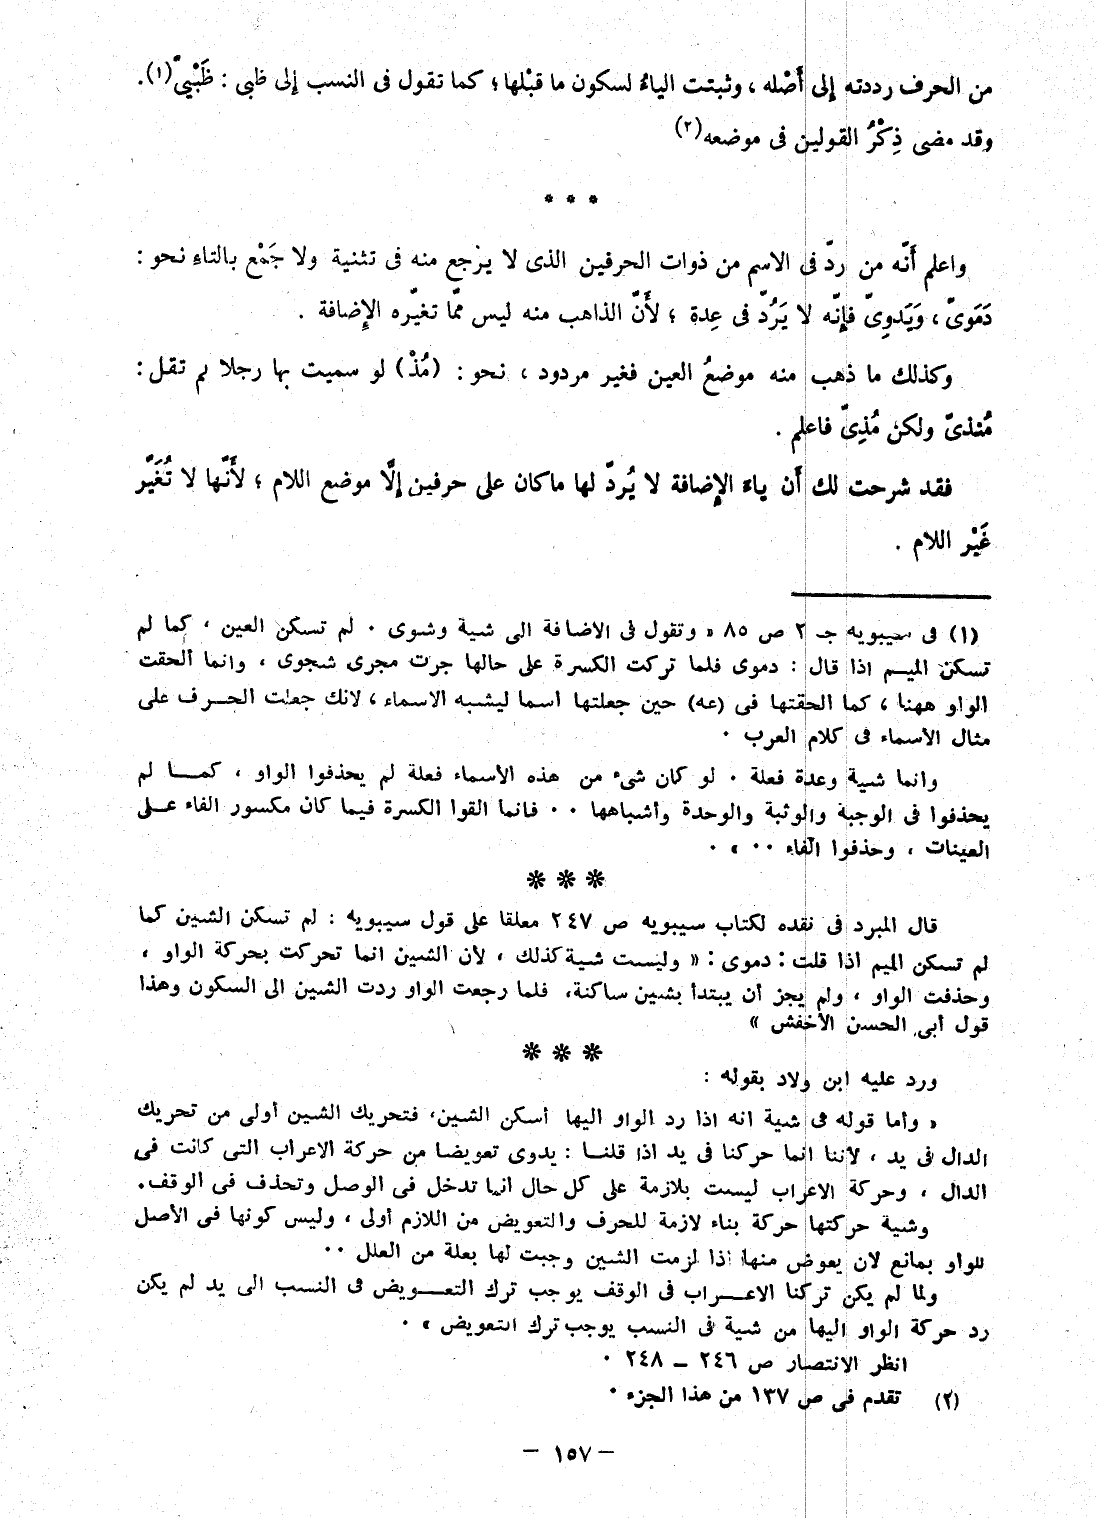 من الحرف رددته إلى أَصْله ، وثبتت الياءُ لسكون ما قبْلها ؛ كما تقول فى النسب إلى ظبى : ظَبْيىّ(١).
وقد مضى ذِكْرُ القولين فى موضعه(٢)
* * *
واعلم أَنّه من ردّ فى الاسم من ذوات الحرفين الذى لا يرْجع منه فى تثنية ولا جَمْع بالتاءِ نحو :
دَمَوىّ ، وَيَدوِىّ فإِنّه لا يَرُدّ فى عِدة ؛ لأَنّ الذاهب منه ليس ممّا تغيّره الإِضافة .
وكذلك ما ذهب منه موضعُ العين فغير مردود ، نحو : (مُذْ) لو سميت بها رجلا لم تقل :
مُنذىّ ولكن مُذِىّ فاعلم .
فقد شرحت لك أَن ياءَ الإِضافة لا يُردّ لها ماكان على حرفين إلَّا موضع اللام ؛ لأَنّها لا تُغَيَّر
غَيْر اللام .
(١) فى سيبويه جـ ٢ ص ٨٥ « وتقول فى الاضافة الى شية وشوى ٠ لم تسكن العين ، كما لم
تسكن الميـم اذا قال : دموى فلما تركت الكسرة على حالها جرت مجرى شجوى ، وانما ألحقت
الواو ههنا ، كما الحقتها فى (عه) حين جعلتها اسما ليشبه الاسماء ، لانك جعلت الحـرف على
مثال الأسماء فى كلام العرب ٠
وانما شية وعدة فعلة ٠ لو كان شىء من هذه الأسماء فعلة لم يحذفوا الواو ، كمـا لم
يحذفوا فى الوجبة والوثبة والوحدة وأشباهها ٠٠ فانما القوا الكسرة فيما كان مكسور الفاء عـلى
العينات ، وحذفوا الفاء ٠٠ » ٠
* * *
قال المبرد فى نقده لكتاب سيبويه ص ٢٤٧ معلقا على قول سيبويه : لم تسكن الشين كما
لم تسكن الميم اذا قلت : دموى : « وليست شية كذلك ، لأن الشين انما تحركت بحركة الواو ،
وحذفت الواو ، ولم يجز أن يبتدأ بشين ساكنة، فلما رجعت الواو ردت الشين الى السكون وهذا
قول أبى الحسن الأخفش »
* * *
ورد عليه ابن ولاد بقوله :
« وأما قوله فى شية انه اذا رد الواو اليها أسكن الشين، فتحريك الشين أولى من تحريك
الدال فى يد ، لأننا انما حركنا فى يد اذا قلنـا : يدوى تعويضا من حركة الاعراب التى كانت فى
الدال ، وحركة الاعراب ليست بلازمة على كل حال انما تدخل فى الوصل وتحذف فى الوقف.
وشية حركتها حركة بناء لازمة للحرف والتعويض من اللازم أولى ، وليس كونها فى الأصل
للواو بمانع لان يعوض منها اذا لزمت الشين وجبت لها بعلة من العلل ٠٠
ولما لم يكن تركنا الاعـراب فى الوقف يوجب ترك التعـويض فى النسب الى يد لم يكن
رد حركة الواو اليها من شية فى النسب يوجب ترك التعويض » ٠
انظر الانتصار ص ٢٤٦ ــ ٢٤٨ ٠
(٢) تقدم فى ص ١٣٧ من هذا الجزء ٠
– ١٥٧ –